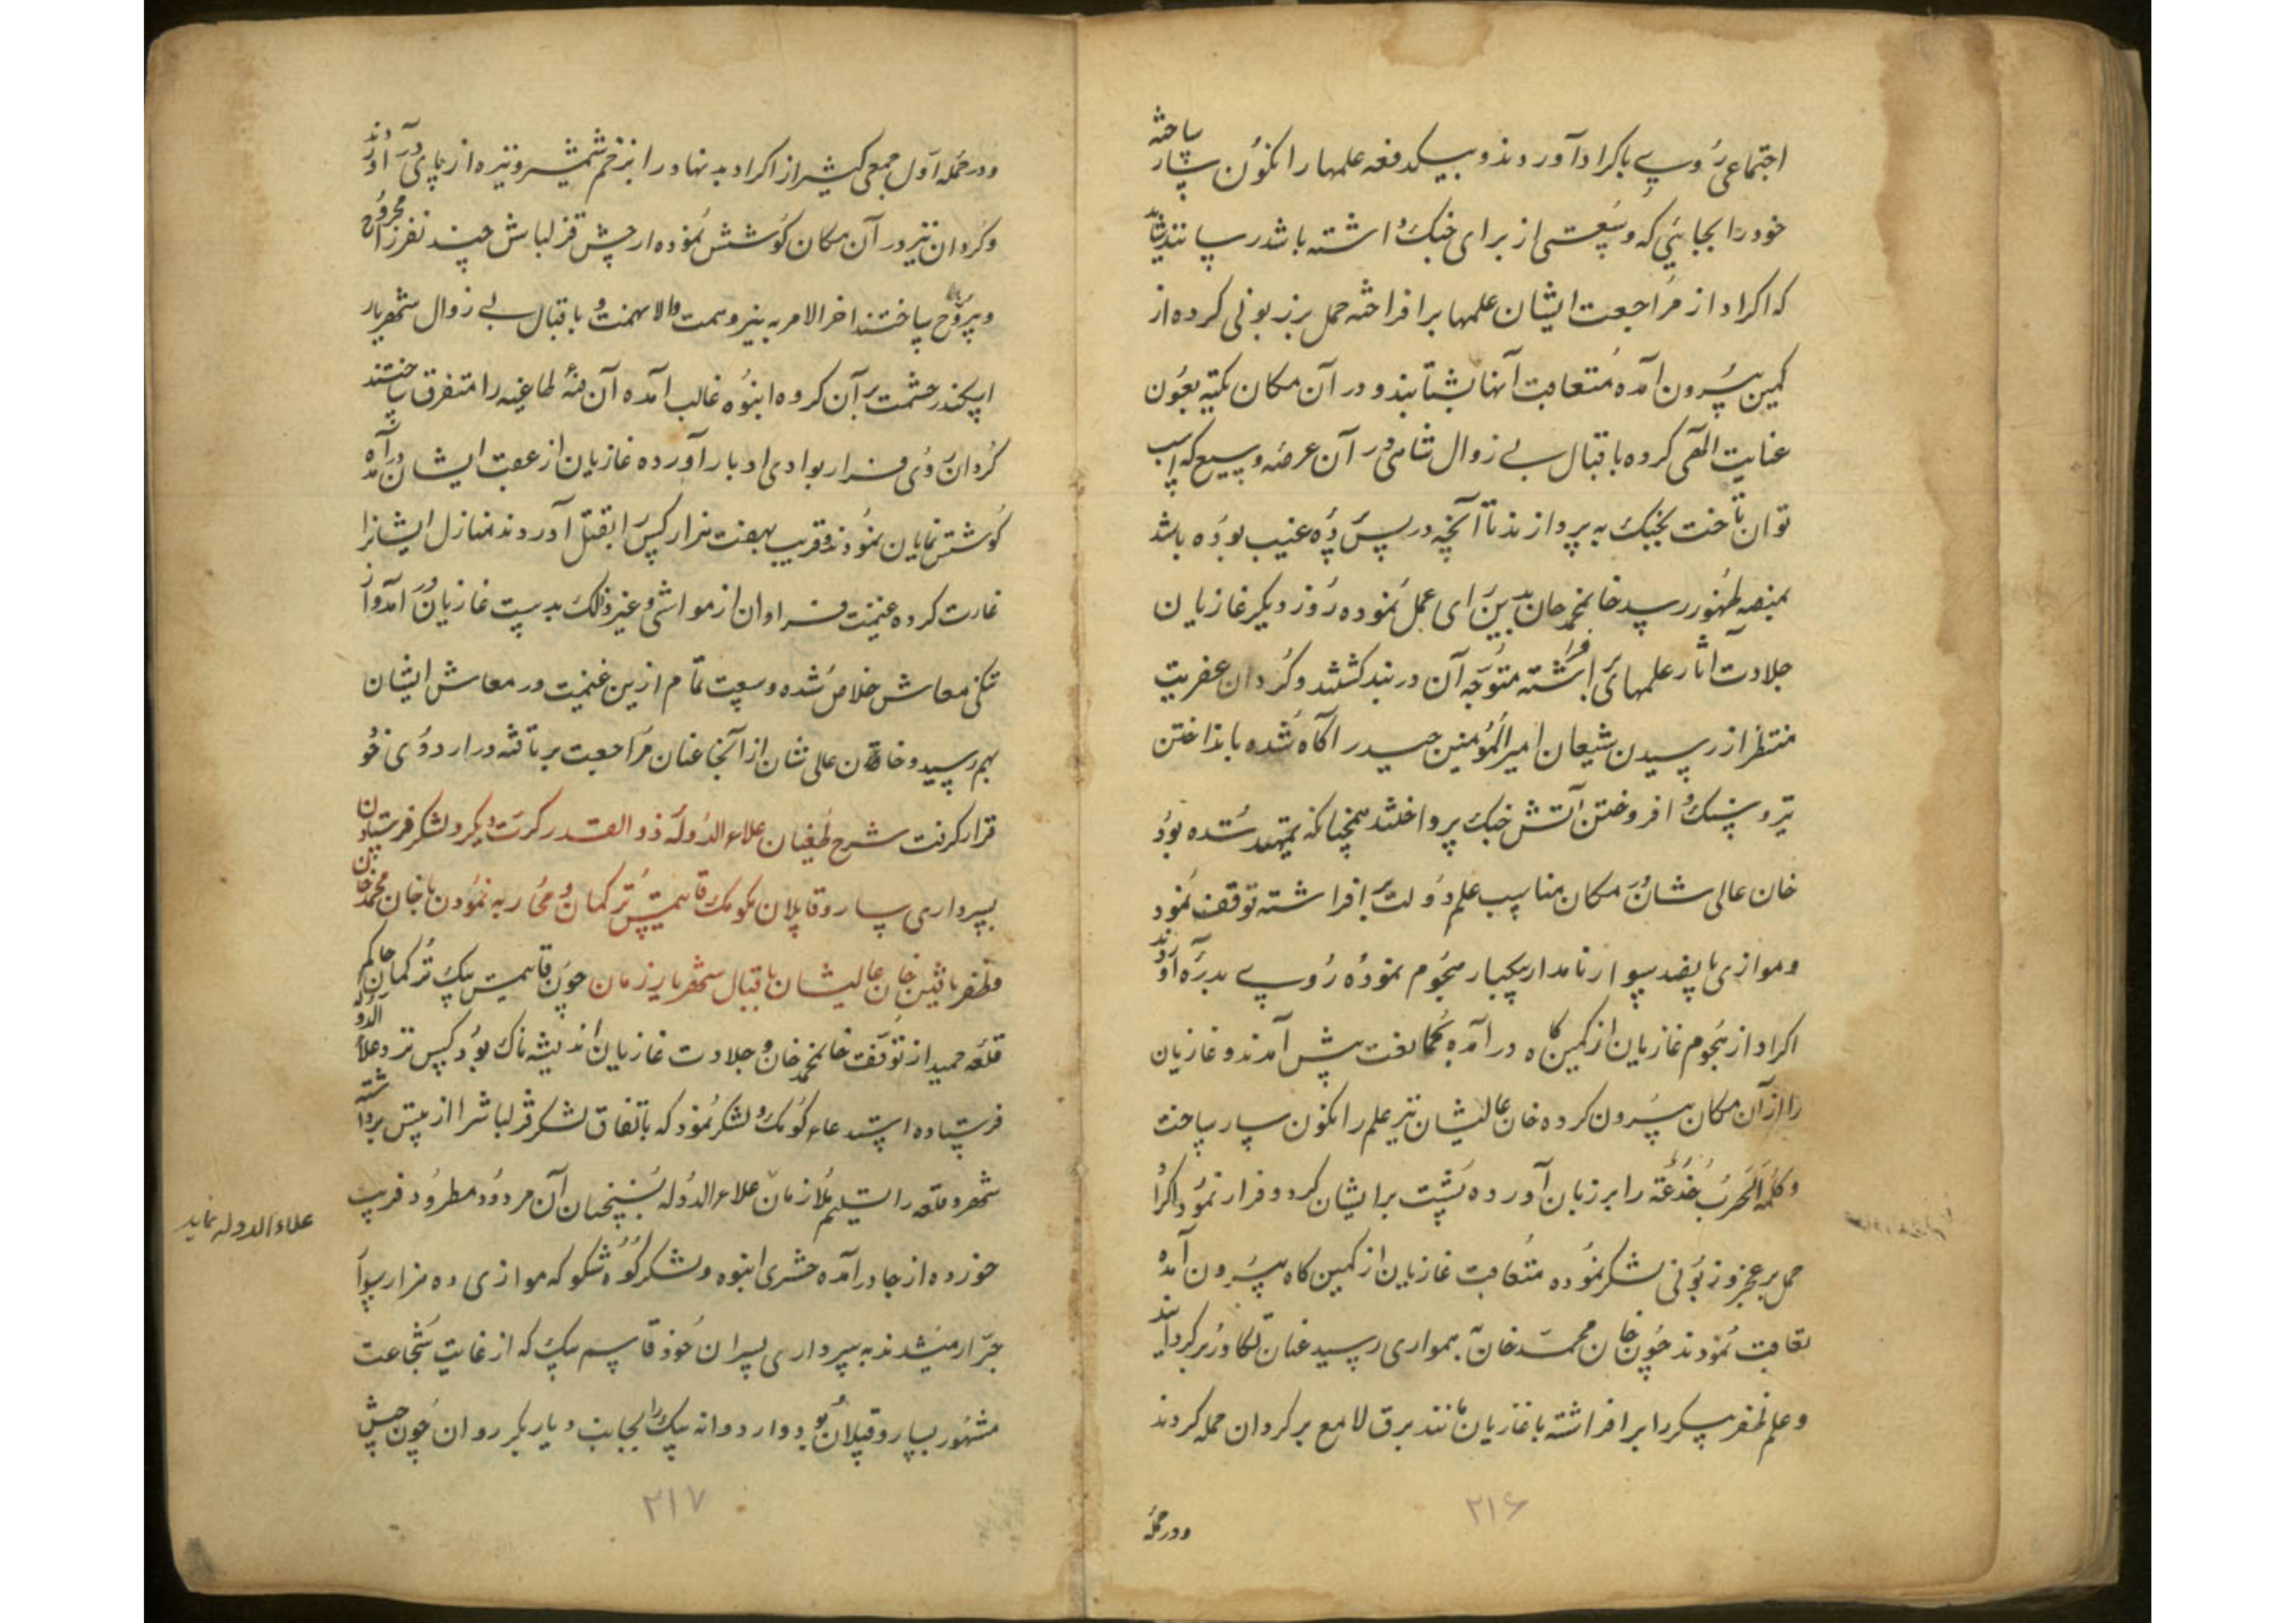 اجتماعی روی باکراد آورند و بیکدفعه علمها را نکون سار ساخته
خود را بجایی که وسعتی از برای جنک داشته باشد رسانند شاید
که اکراد از مراجعت ایشان علمها برافراخته حمل بر زبونی کرده از
کمین بیرون آمده متعاقبت آنها بشتابند و در آن مکان تکیه بعون
عنایت الهی کرده باقبال بی زوال شاهی در آن عرصه وسیع که اسب
توان تاخت بجنک به پردازند تا آنچه در پس پرده غیب بوده باشد
بمنصه ظهور رسد خانمحمد خان بدین رای عمل نموده روز دیکر غازیان
جلادت آثار علمهای برافراشته متوجه آن دربند کشتند و کردان عفریت
منتظر از رسیدن شیعان امیرالمؤمنین حیدر آکاه شده بانداختن
تیر و سنک و افروختن آتش جنک پرداختند همچنانکه تمهید شده بود
خان عالی شان در مکان مناسب علم دولت برافراشته توقف نمود
و موازی پانصد سوار نامدار یکبار هجوم نموده روی بدره آوردند
اکراد از هجوم غازیان از کمین کاه درآمده بمخالفت پیش آمدند و غازیان
را از آن مکان بیرون کرده خان عالیشان نیز علم را نکون سار ساخت
و کلمه الحرب خدعة را بر زبان آورده پشت بر ایشان کرد و فرار نمود اکراد
حمل بر عجز و زبونی لشکر نموده متعاقب غازیان از کمین کاه بیرون آمده
تعاقب نمودند چون خان محمد خان بهمواری رسید عنان تکاور برکردانید
و علم ظفر پیکر را برافراشته با غازیان مانند برق لامع بر کردان حمله کردند
۲۱۶
و در حمله
و در حمله اول جمعی کثیر از اکراد بدنهاد را بزخم شمشیر و نیزه از پای درآوردند
و کردان نیز در آن مکان کوشش نموده از جیش قزلباش چند نفر را مجروح
و بیروح ساختند اخرالامر به نیرو همت والانهمت و باقبال بی زوال شهریار
اسکندر حشمت بر آن کروه انبوه غالب آمده آن فئه طاغیه را متفرق ساختند
کردان روی فرار بوادی ادبار آورده غازیان از عقب ایشان درآمده
کوشش نمایان نمودند و قریب بهفت هزار کس را بقتل آوردند منازل ایشانرا
غارت کرده غنیمت فراوان از مواشی و غیر ذلک بدست غازیان در آمد و از
تنکی معاش خلاص شده وسعت تمام ازین غنیمت در معاش ایشان
بهم رسید و خان عالی شان از آنجا عنان مراجعت برتافته در اردوی خود
قرار کرفت شرح طغیان علاءالدوله ذوالقدر کرت دیکر و لشکر فرستادن
بسرداری سارو قاپلان بکومک قایتمش ترکمان و محاربه نمودن با خان محمد خان
و ظفر یافتن خان عالیشان باقبال شهریار زمان چون قایتمش بیک ترکمان حاکم
قلعه حمید از توقف خانمحمد خان و جلادت غازیان اندیشه ناک بود کس نزد علاءالدوله
فرستاده استدعاء کومک و لشکر نمود که باتفاق لشکر قزلباش را از پیش برداشته
شهر و قلعه را تسلیم ملازمان علاءالدوله بسخنان آن مردود مطرود فریب
علاءالدوله نماید
خورده از جا درآمده حشری انبوه و لشکر کوه شکوه که موازی ده هزار سوار
جرار میشدند به سرداری پسران خود قاسم بیک که از غایت شجاعت
مشهور بسارو قپلان بود و اردوانه بیک را بجانب دیاربکر روان چون جیش
۲۱۷